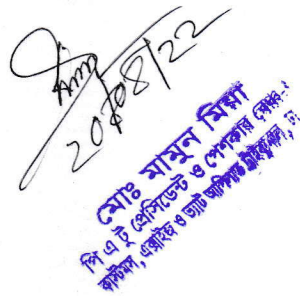 20/08/22
মোঃ মামুন মিয়া
পি এ টু প্রেসিডেন্ট ও পেশকার
কাস্টমস, এক্সাইজ ও ভ্যাট আপিলাত ট্রাইব্যুনাল, ঢা